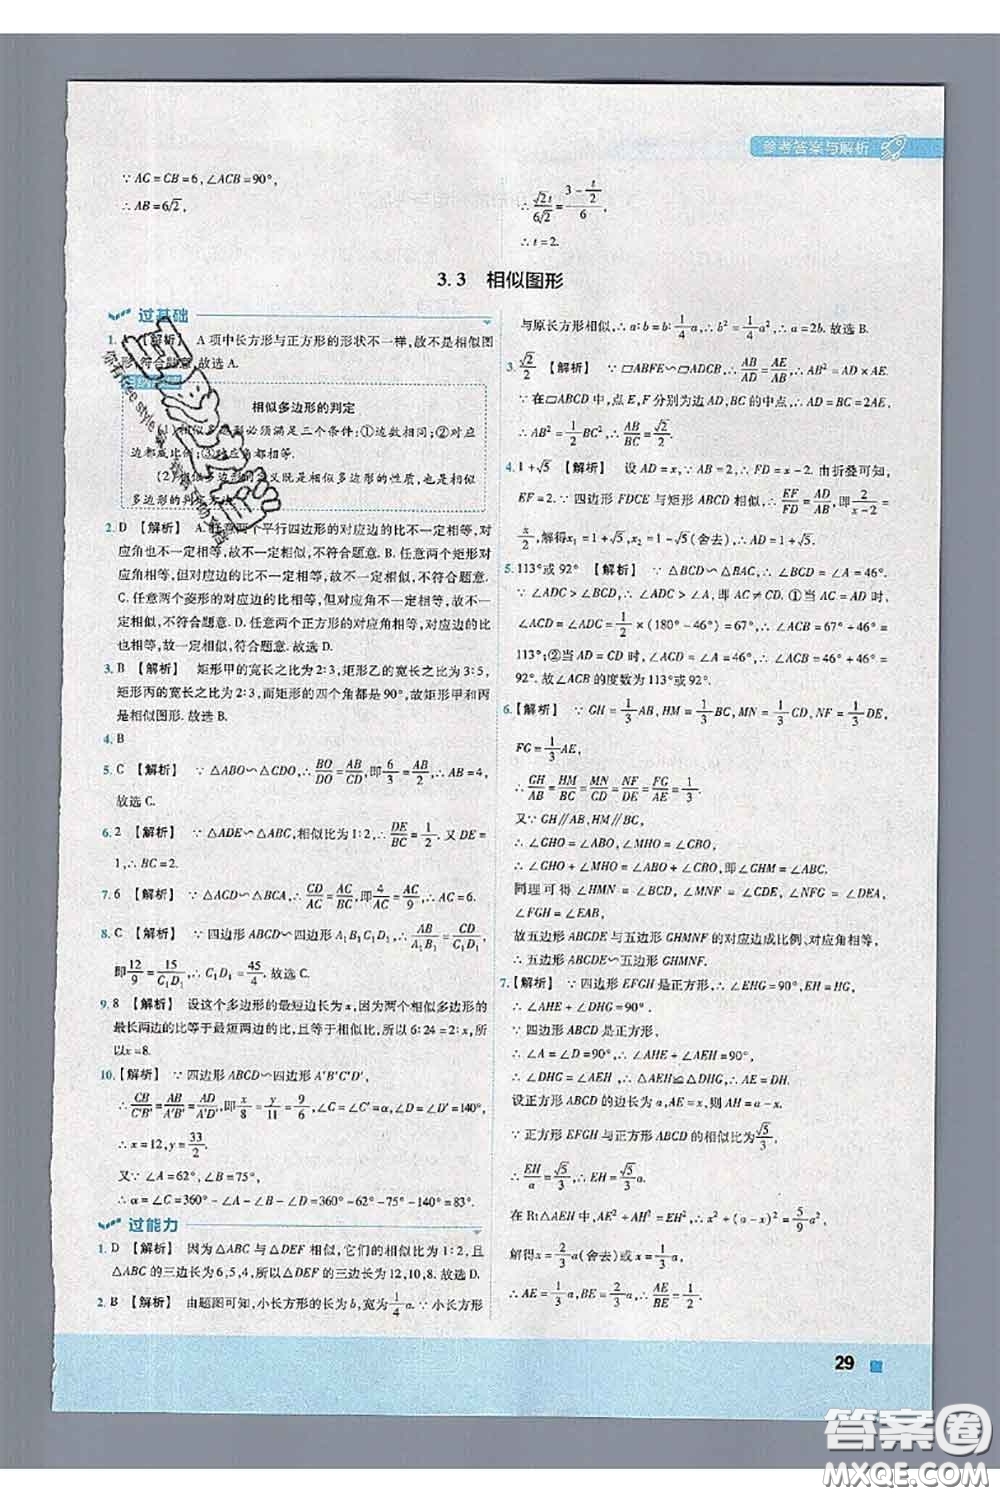 参考答案与解析
∵AC=CB=6,∠ACB=90°,
∴AB=6√2,
∴√2t/6√2=(3-t/2)/6,
∴t=2.
3.3 相似图形
过基础
1. 【解析】 A项中长方形与正方形的形状不一样,故不是相似图
形,符合题意,故选A.
相似多边形的判定
(1)相似多边形必须满足三个条件:①边数相同;②对应
边都成比例;③对应角都相等.
(2)相似多边形的定义既是相似多边形的性质,也是相似
多边形的判定方法.
2. D 【解析】 A.任意两个平行四边形的对应边的比不一定相等,对
应角也不一定相等,故不一定相似,不符合题意.B.任意两个矩形对
应角相等,但对应边的比不一定相等,故不一定相似,不符合题意.
C.任意两个菱形的对应边的比相等,但对应角不一定相等,故不一
定相似,不符合题意.D.任意两个正方形的对应角相等,对应边的比
也相等,故一定相似,符合题意.故选D.
3. B 【解析】 矩形甲的宽长之比为2:3,矩形乙的宽长之比为4:5,
矩形丙的宽长之比为2:3,而矩形的四个角都是90°,故矩形甲和丙
是相似图形.故选B.
4. B
5. C 【解析】 ∵△ABO∽△CDO,∴BO/DO=AB/CD,即6/3=AB/2,∴AB=4,
故选C.
6. 2 【解析】 ∵△ADE∽△ABC,相似比为1:2,∴DE/BC=1/2.又DE=
1,∴BC=2.
7. 6 【解析】 ∵△ACD∽△BCA,∴CD/AC=AC/BC,即4/AC=AC/9,∴AC=6.
8. C 【解析】 ∵四边形ABCD∽四边形A₁B₁C₁D₁,∴AB/A₁B₁=CD/C₁D₁,
即12/9=15/C₁D₁,∴C₁D₁=45/4.故选C.
9. 8 【解析】 设这个多边形的最短边长为x,因为两个相似多边形的
最长两边的比等于最短两边的比,且等于相似比,所以6:24=2:x,所
以x=8.
10.【解析】 ∵四边形ABCD∽四边形A'B'C'D',
∴CB/C'B'=AB/A'B'=AD/A'D',即x/8=y/11=9/6,∠C=α,∠D=∠D'=140°,
∴x=12,y=33/2.
又∵∠A=62°,∠B=75°,
∴α=∠C=360°-∠A-∠B-∠D=360°-62°-75°-140°=83°.
过能力
1. D 【解析】 因为△ABC与△DEF相似,它们的相似比为1:2,且
△ABC的三边长为6,5,4,所以△DEF的三边长为12,10,8.故选D.
2. B 【解析】 由题图可知,小长方形的长为b,宽为1/4a.∵小长方形
与原长方形相似,∴a:b=b:1/4a,∴b²=1/4a²,∴a=2b.故选B.
3. √2/2 【解析】 ∵▱ABFE∽▱ADCB,∴AB/AD=AE/AB,∴AB²=AD×AE.
∵在▱ABCD中,点E,F分别为边AD,BC的中点,∴AD=BC=2AE,
∴AB²=1/2BC²,∴AB/BC=√2/2.
4. 1+√5 【解析】 设AD=x,∵AB=2,∴FD=x-2.由折叠可知,
EF=2.∵四边形FDCE与矩形ABCD相似,∴EF/FD=AD/AB,即2/(x-2)=
x/2,解得x₁=1+√5,x₂=1-√5(舍去),∴AD=1+√5.
5. 113°或92° 【解析】 ∵△BCD∽△BAC,∴∠BCD=∠A=46°.
∵∠ADC>∠BCD,∴∠ADC>∠A,即AC≠CD.①当AC=AD时,
∠ACD=∠ADC=1/2×(180°-46°)=67°,∴∠ACB=67°+46°=
113°;②当AD=CD时,∠ACD=∠A=46°,∴∠ACB=46°+46°=
92°.故∠ACB的度数为113°或92°.
6.【解析】 ∵GH=1/3AB,HM=1/3BC,MN=1/3CD,NF=1/3DE,
FG=1/3AE,
∴GH/AB=HM/BC=MN/CD=NF/DE=FG/AE=1/3.
又∵GH∥AB,HM∥BC,
∴∠GHO=∠ABO,∠MHO=∠CBO,
∴∠GHO+∠MHO=∠ABO+∠CBO,即∠GHM=∠ABC.
同理可得∠HMN=∠BCD,∠MNF=∠CDE,∠NFG=∠DEA,
∠FGH=∠EAB,
故五边形ABCDE与五边形GHMNF的对应边成比例、对应角相等,
∴五边形ABCDE∽五边形GHMNF.
7.【解析】 ∵四边形EFGH是正方形,∴EH=HG,∠EHG=90°,
∴∠AHE+∠DHG=90°.
∵四边形ABCD是正方形,
∴∠A=∠D=90°,∴∠AHE+∠AEH=90°,
∴∠DHG=∠AEH,∴△AEH≌△DHG,∴AE=DH.
设正方形ABCD的边长为a,AE=x,则AH=a-x.
∵正方形EFGH与正方形ABCD的相似比为√5/3,
∴EH/a=√5/3,∴EH=√5/3a.
在Rt△AEH中,AE²+AH²=EH²,∴x²+(a-x)²=5/9a²,
解得x=2/3a(舍去)或x=1/3a,
∴AE=1/3a,BE=2/3a,∴AE/BE=1/2.
29
答案圈
MXQE.COM